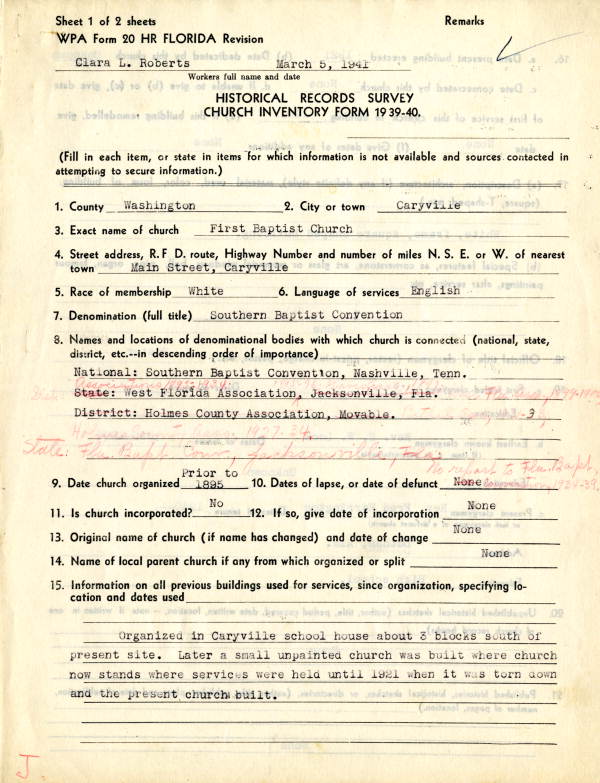 Sheet 1 of 2 sheets Remarks
WPA Form 20 HR FLORIDA Revision
Clara L. Roberts March 5, 1941
Workers full name and date
HISTORICAL RECORDS SURVEY
CHURCH INVENTORY FORM 1939-40.
(Fill in each item, or state in items for which information is not available and sources contacted in
attempting to secure information.)
1. County Washington 2. City or town Caryville
3. Exact name of church First Baptist Church
4. Street address, R.F D. route, Highway Number and number of miles N. S. E. or W. of nearest
town Main Street, Caryville
5. Race of membership White 6. Language of services English
7. Denomination (full title) Southern Baptist Convention
8. Names and locations of denominational bodies with which church is connected (national, state,
district, etc.--in descending order of importance)
National: Southern Baptist Convention, Nashville, Tenn.
State: West Florida Association, Jacksonville, Fla.
District: Holmes County Association, Movable.
Holmes County Assoc. 1927-34.
State: Fla. Bapt. Conv., Jacksonville, Fla.
No report to Fla. Bapt.
Convention, 1924-39.
9. Date church organized Prior to 1895 10. Dates of lapse, or date of defunct None
11. Is church incorporated? No 12. If so, give date of incorporation None
13. Original name of church (if name has changed) and date of change None
14. Name of local parent church if any from which organized or split None
15. Information on all previous buildings used for services, since organization, specifying lo-
cation and dates used
Organized in Caryville school house about 3 blocks south of
present site. Later a small unpainted church was built where church
now stands where services were held until 1921 when it was torn down
and the present church built.
J